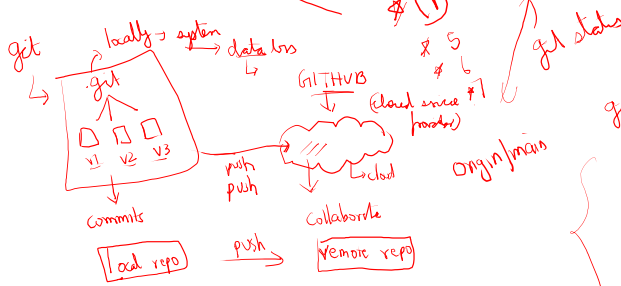 git
locally → system
→ data loss
.git
v1 v2 v3
commits
local repo
push
push
push
GITHUB
(cloud
cloud
collaborate
remote repo
* 5
* 6
* 7
git status
origin/main
g